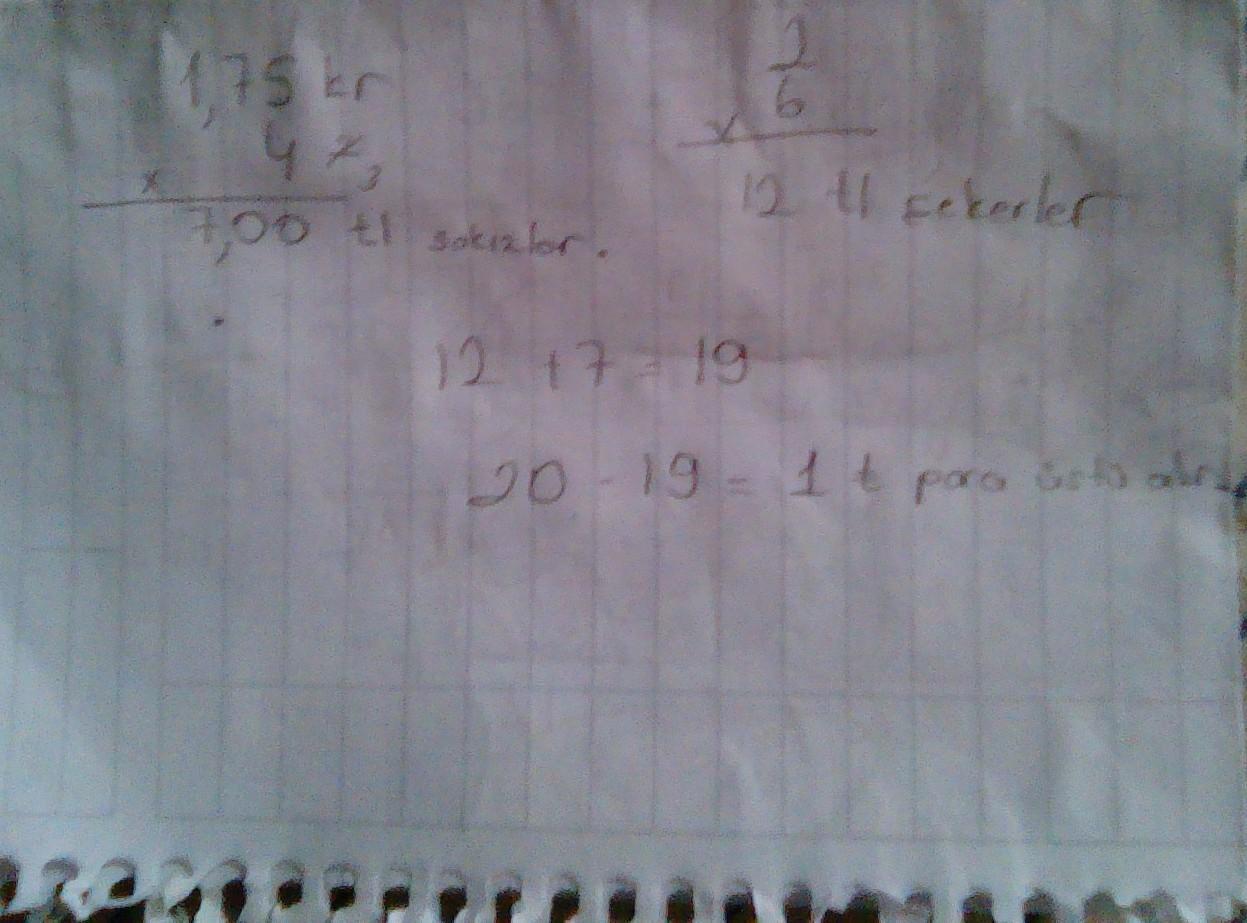 1,75 kr
4 x,
x
7,00 tl sakızlar.
2
6
x
12 tl şekerler
12 + 7 = 19
20 - 19 = 1 t para üstü alır